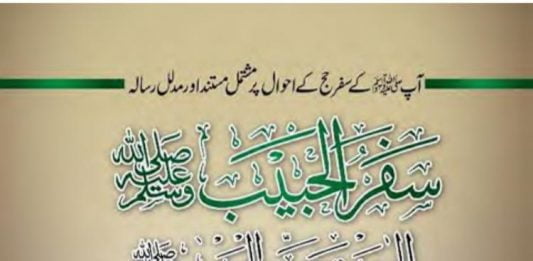 آپ ﷺ کے سفر حج کے احوال پر مشتمل مستند اور مدلل رسالہ
سَفَرُ الْحَبِيْبِ صلى الله عليه وسلم